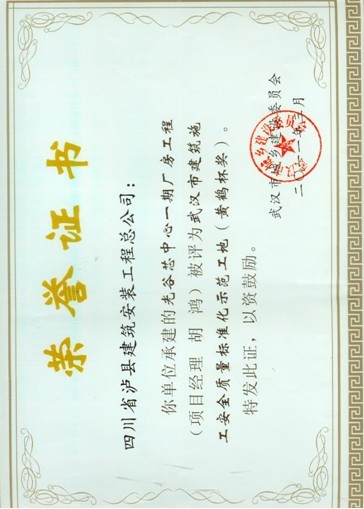 荣誉证书
四川省泸县建筑安装工程总公司：
你单位承建的光谷芯中心一期厂房工程
（项目经理 胡 鸿）被评为武汉市建筑施
工安全质量标准化示范工地（黄鹤杯奖）。
特发此证，以资鼓励。
武汉市城乡建设委员会